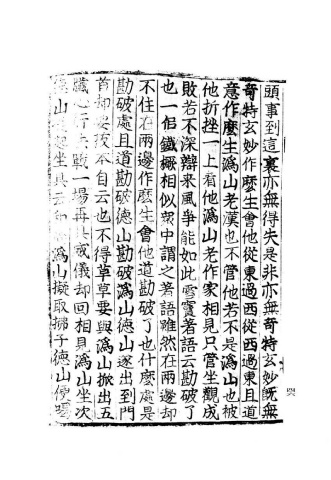 頭事到這裏亦無得失是非亦無奇特玄妙既無
奇特玄妙作麽生會他從東過西從西過東且道
意作麽生溈山老漢也不管他若不是溈山也被
他折挫一上看他溈山老作家相見只管坐觀成
敗若不深辯来風爭能如此雪竇著語云勘破了
也一佀鐵橛相似衆中謂之著語雖然在兩邊却
不住在兩邊作麽生會他道勘破了也什麽處是
勘破處且道勘破德山勘破溈山德山遂出到門
首却要拔本自云也不得草草要與溈山掀出五
心法戰一場再具威儀却回相見溈山坐次
德山提起坐具云和溈山擬取拂子德山便喝